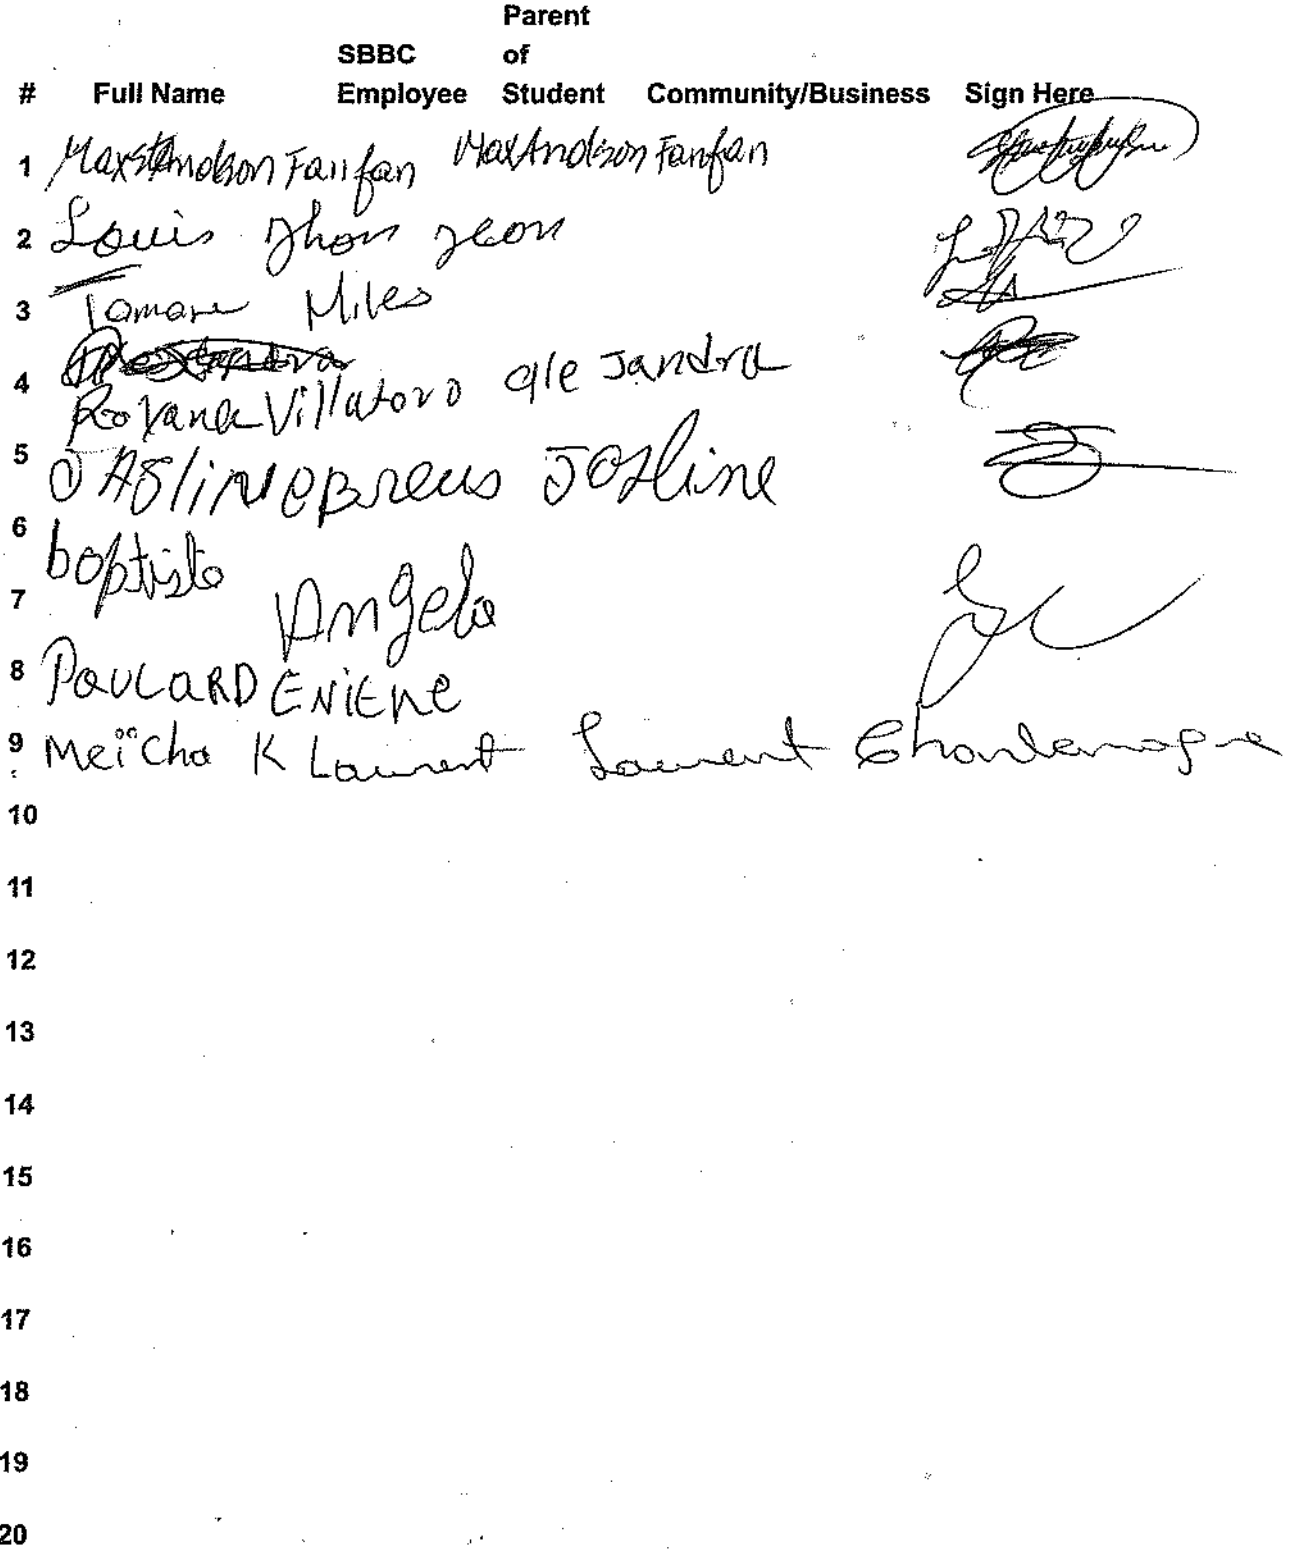 Parent
SBBC of
# Full Name Employee Student Community/Business Sign Here
1 Fanfan MaxAndson Fanfan
2 Louis Jhon Jeon
3 Tamara Miles
4 Roxana Villatoro ale Jandra
5 JASlINeBreus Josline
6 baptiste
7 Angela
8 PauLARD ENiENe
9 Meicha K Laurent Laurent Charlemagne
10
11
12
13
14
15
16
17
18
19
20